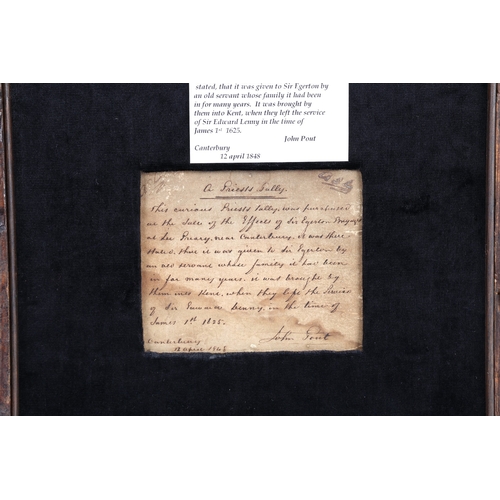 stated, that it was given to Sir Egerton by
an old servant whose family it had been
in for many years. It was brought by
them into Kent, when they left the service
of Sir Edward Lenny in the time of
James 1st 1625.
John Pout
Canterbury
12 april 1848
A Priests Tally.
This curious Priests Tally, was purchased
at the Sale of the Effects of Sir Egerton Brydges
at Lee Priory, near Canterbury. it was there
stated, that it was given to Sir Egerton by
an old servant whose family it had been
in for many years. it was brought by
them into Kent, when they left the Service
of Sir Edward Denny, in the time of
James 1st 1625.
John Pout
Canterbury
12 April 1848